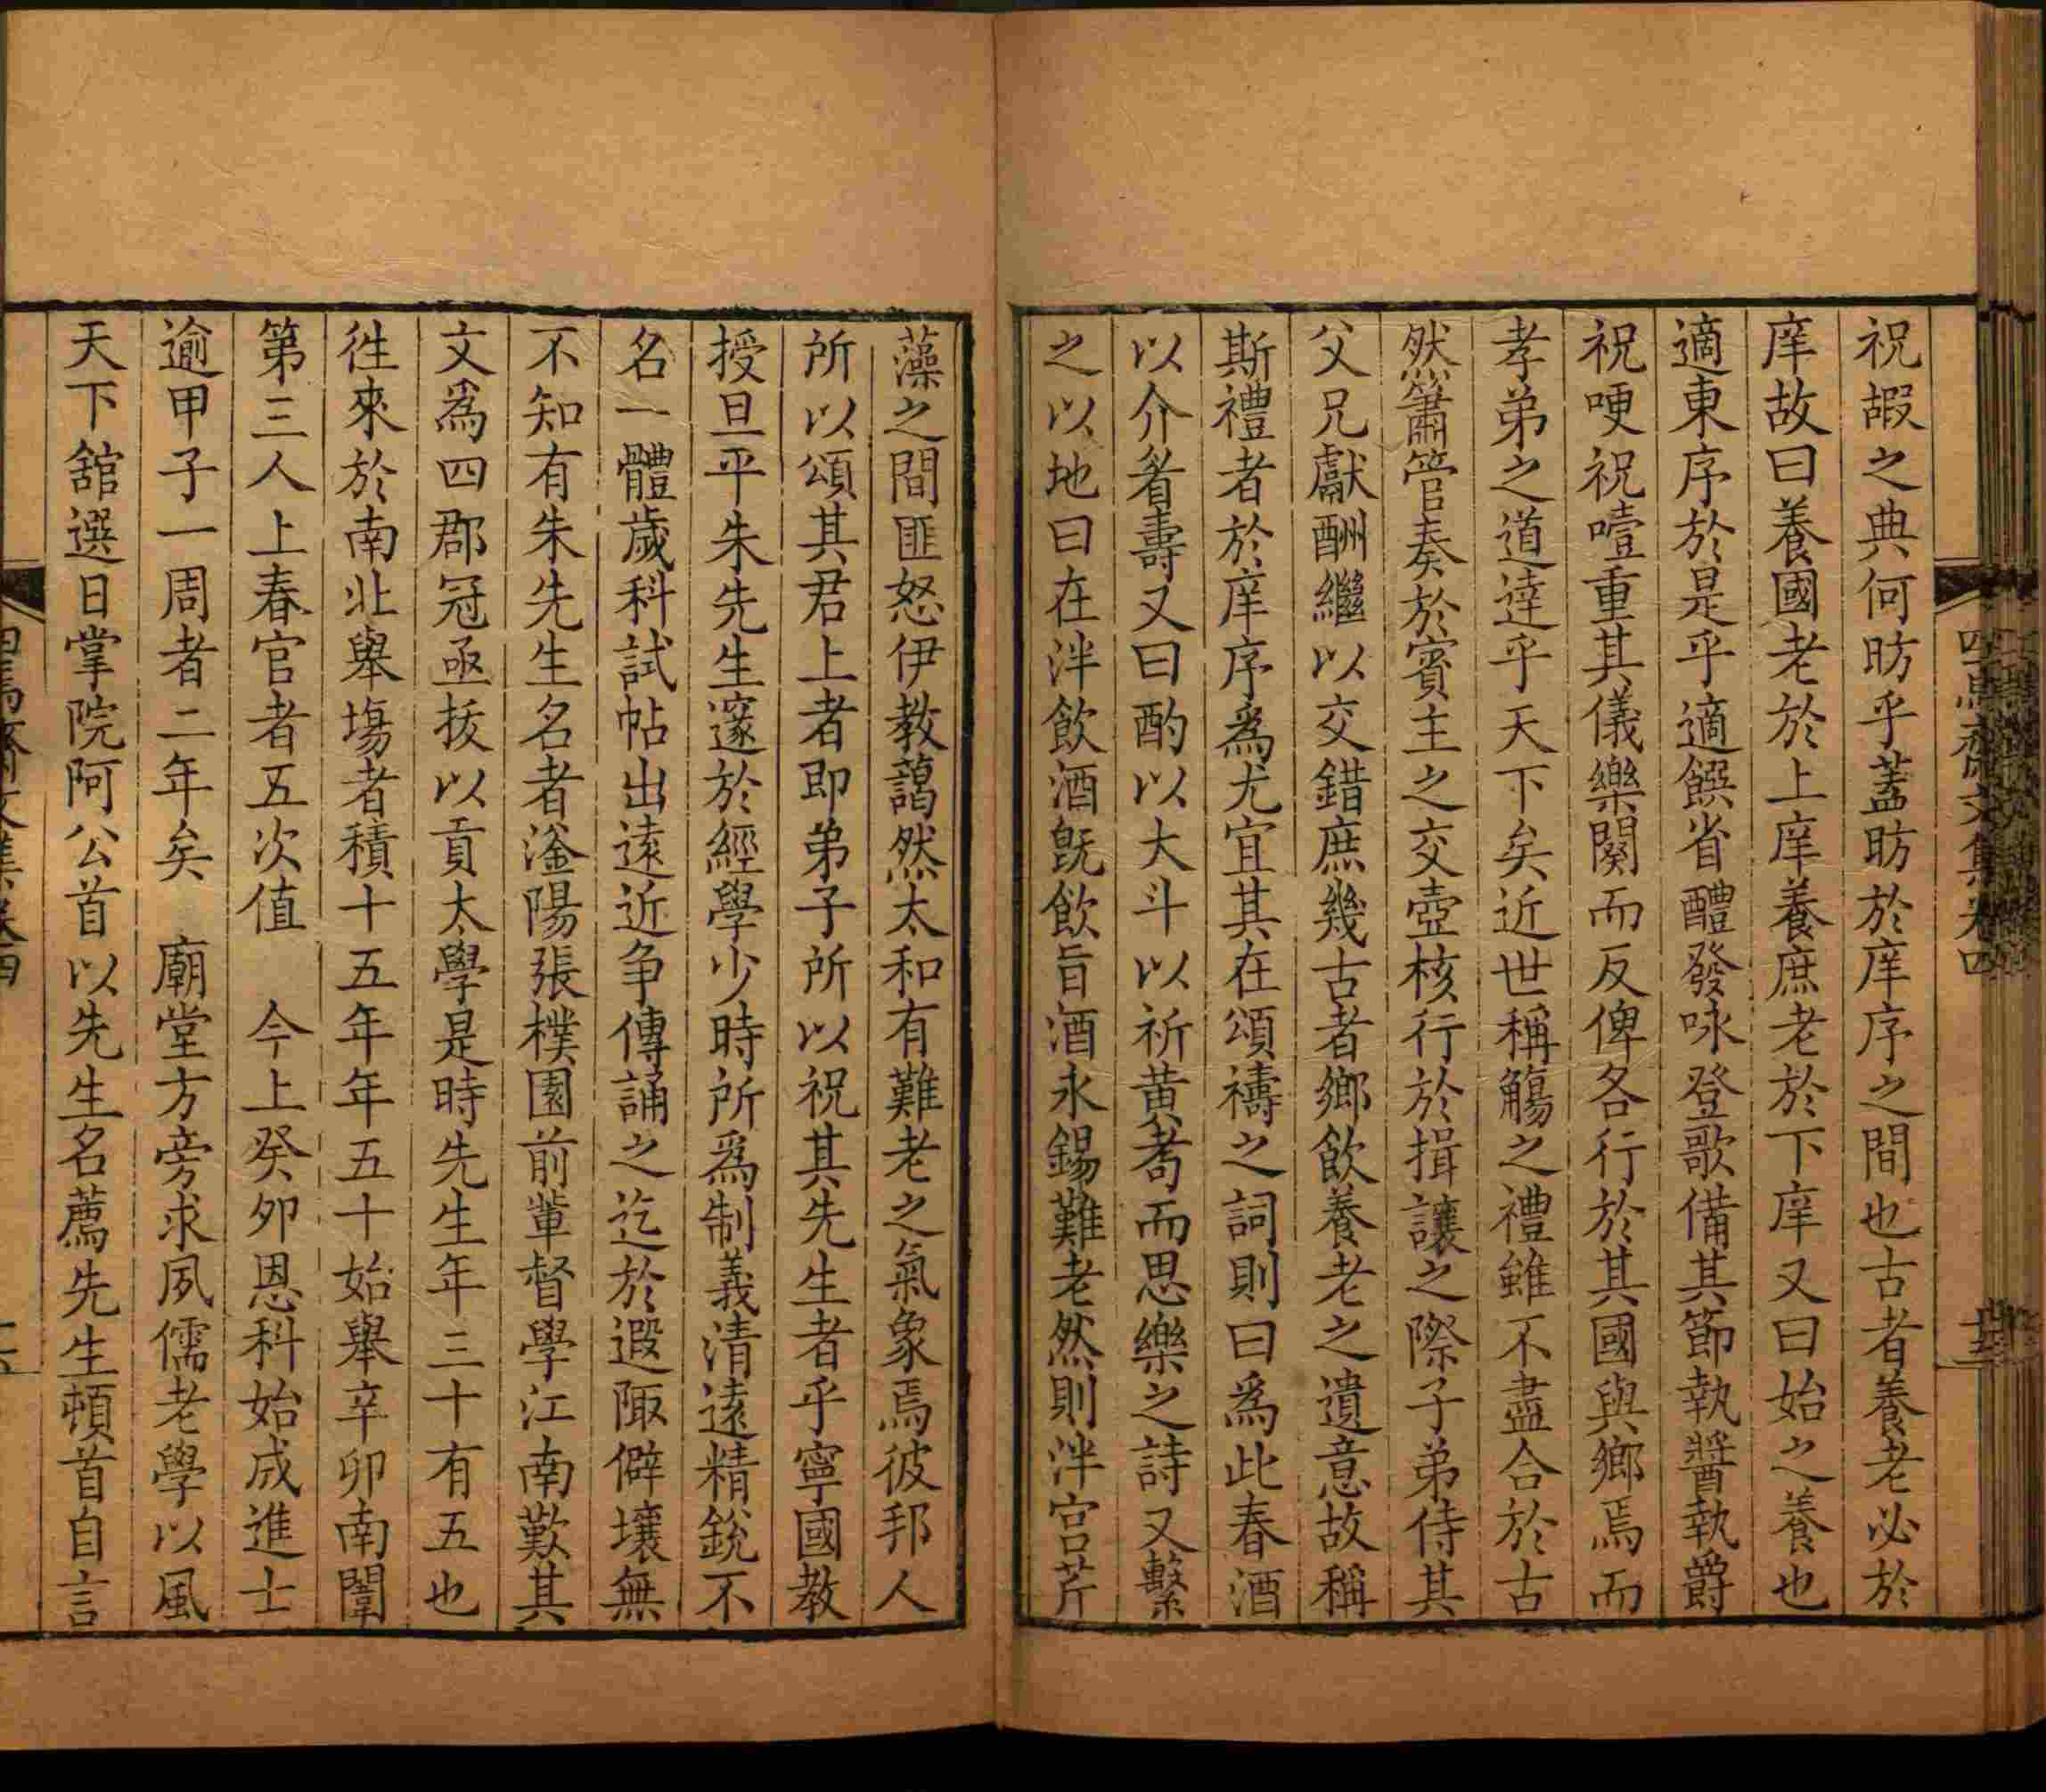 祝嘏之典何昉乎蓋昉於庠序之間也古者養老必於
庠故曰養國老於上庠養庶老於下庠又曰始之養也
適東序於是乎適饌省醴發咏登歌備其節執醬執爵
祝哽祝噎重其儀樂闋而反俾各行於其國與鄉焉而
孝弟之道達乎天下矣近世稱觴之禮雖不盡合於古
然簫管奏於賓主之交壺核行於揖讓之際子弟侍其
父兄獻酬繼以交錯庶幾古者鄉飲養老之遺意故稱
斯禮者於庠序爲尤宜其在頌禱之詞則曰爲此春酒
以介眉壽又曰酌以大斗以祈黃耇而思樂之詩又繫
之以地曰在泮飲酒旣飲旨酒永錫難老然則泮宮芹
藻之間匪怒伊教藹然太和有難老之氣象焉彼邦人
所以頌其君上者即弟子所以祝其先生者乎寧國教
授旦平朱先生邃於經學少時所爲制義清遠精銳不
名一體歲科試帖出遠近争傳誦之迄於遐陬僻壤無
不知有朱先生名者滏陽張樸園前輩督學江南歎其
文爲四郡冠亟拔以貢太學是時先生年三十有五也
徃來於南北舉塲者積十五年年五十始舉辛卯南闈
第三人上春官者五次值 今上癸卯恩科始成進士
逾甲子一周者二年矣 廟堂方旁求夙儒老學以風
天下舘選日掌院阿公首以先生名薦先生頓首自言
文集卷四